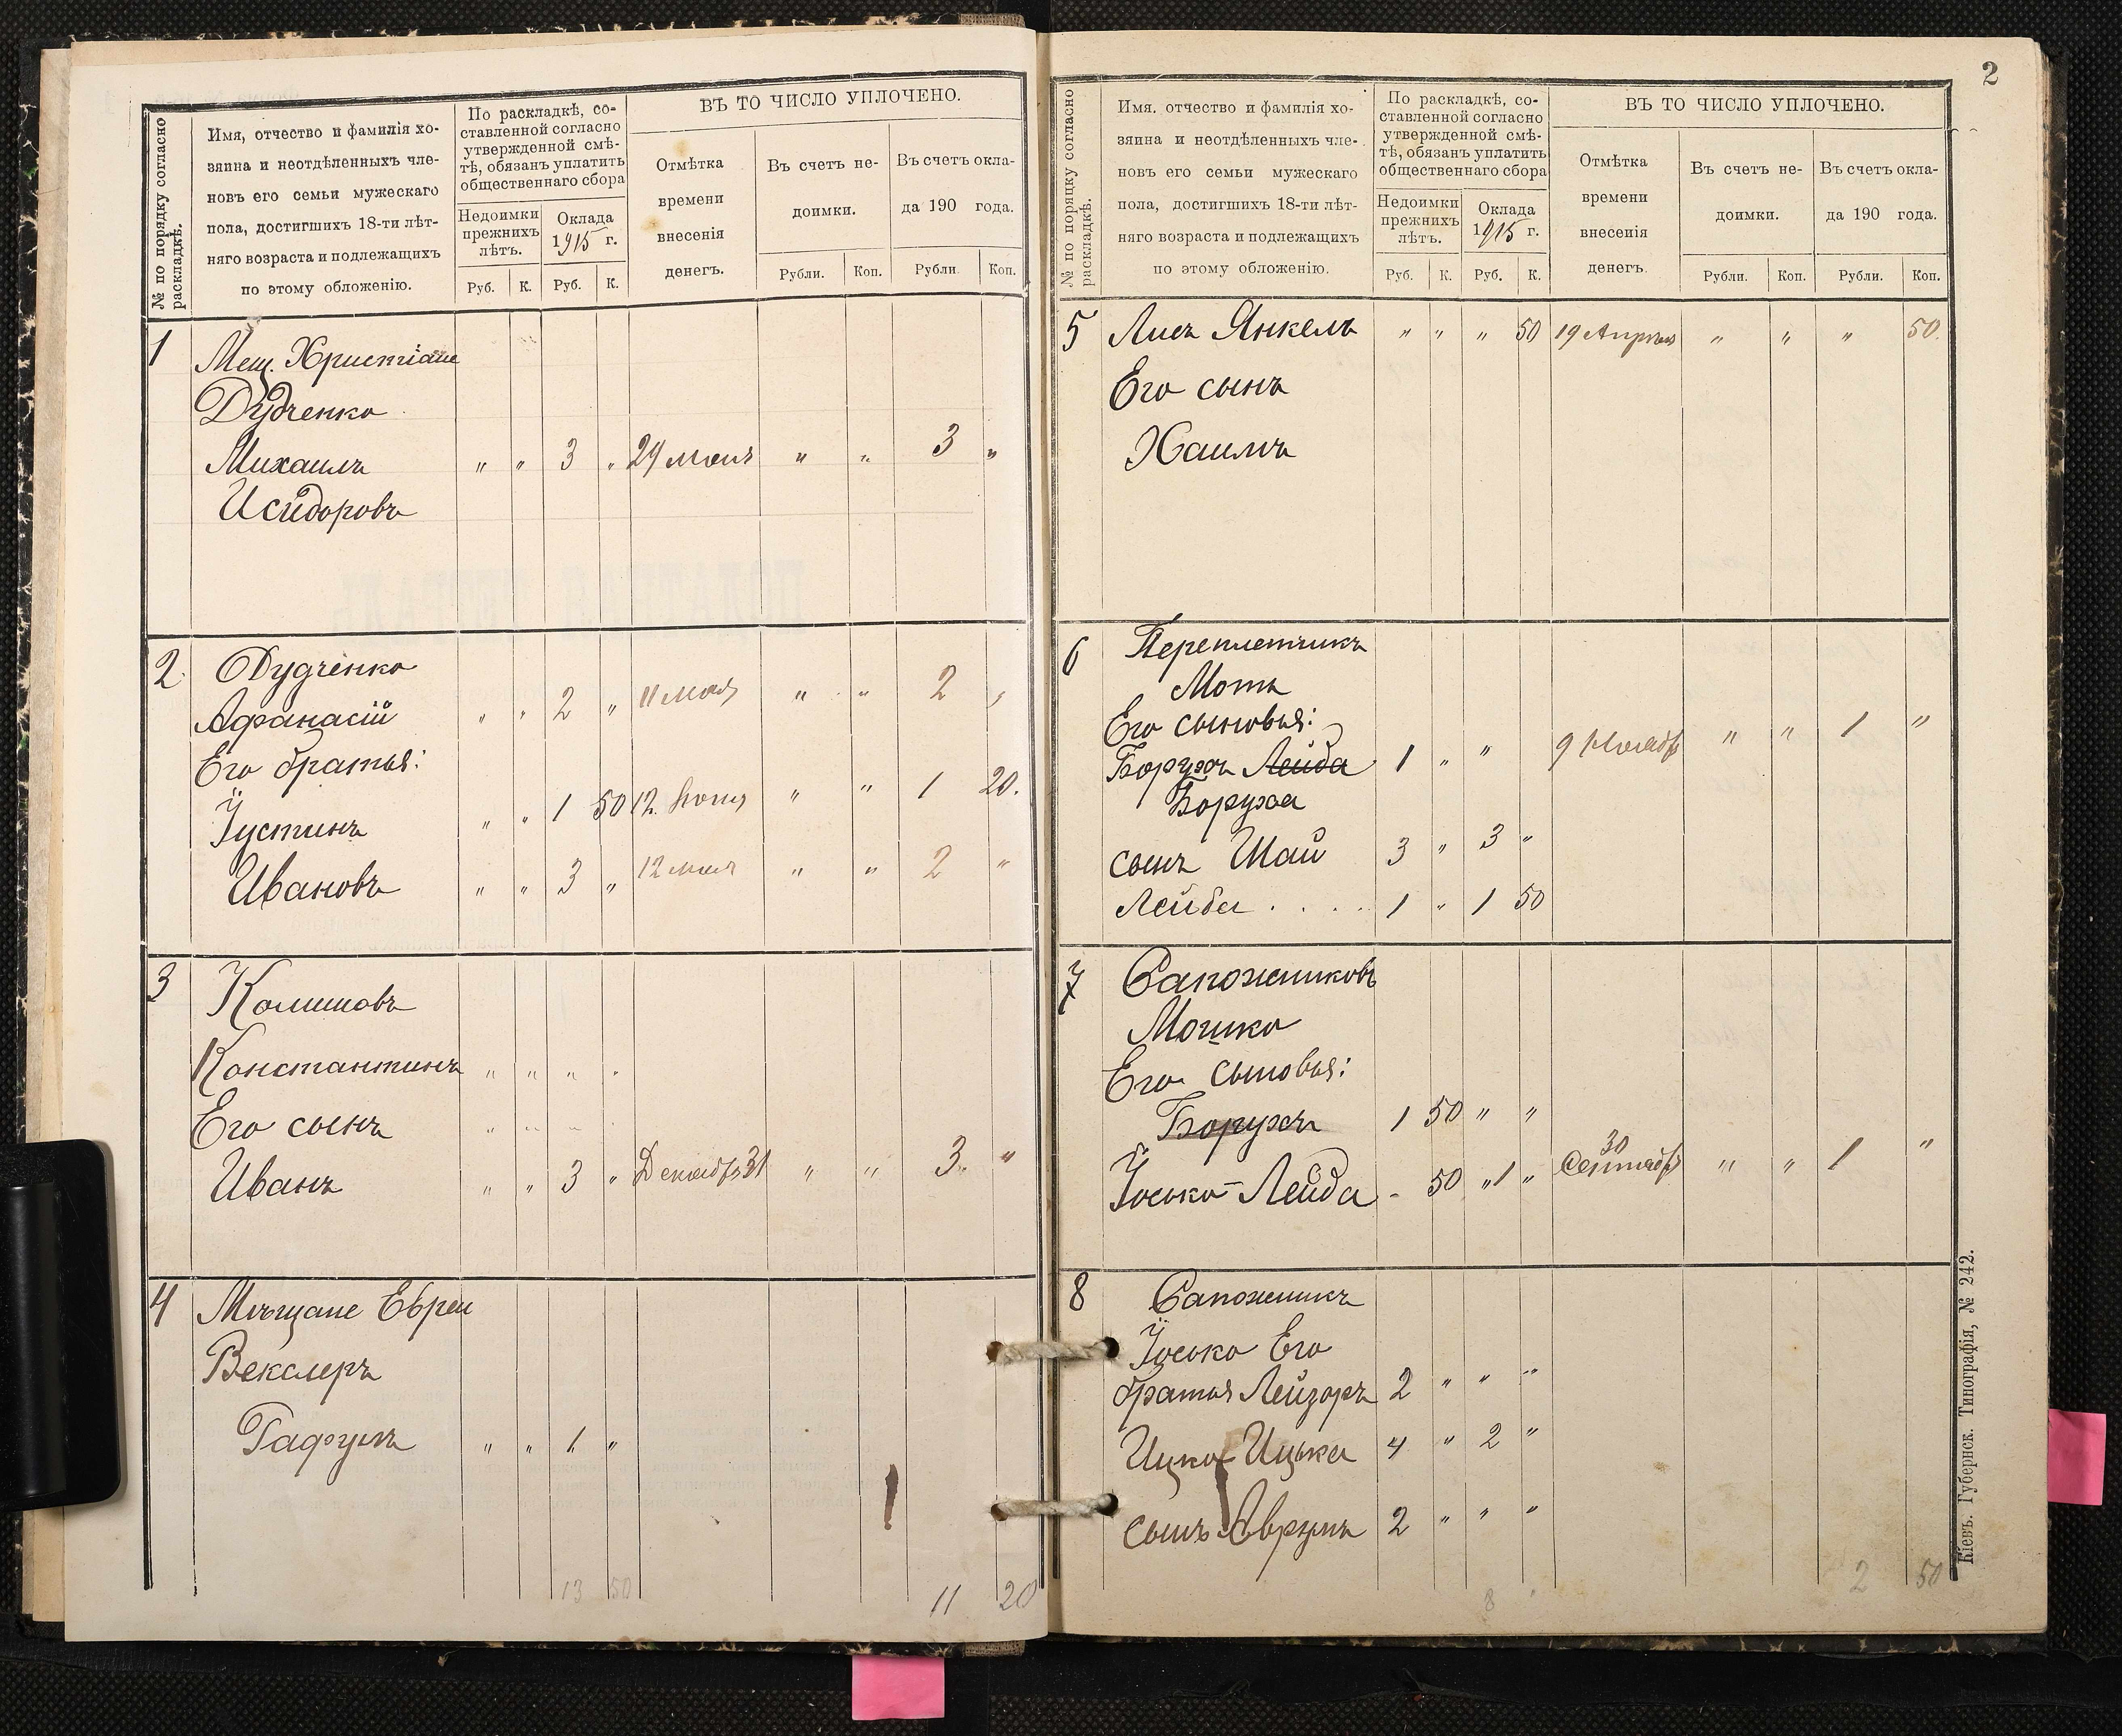 № по порядку согласно раскладкѣ.
Имя, отчество и фамилія хо-
зяина и неотдѣленныхъ чле-
новъ его семьи мужескаго
пола, достигшихъ 18-ти лѣт-
няго возраста и подлежащихъ
по этому обложенію.
По раскладкѣ, со-
ставленной согласно
утвержденной смѣ-
тѣ, обязанъ уплатить
общественнаго сбора
Недоимки
прежнихъ
лѣтъ.
Оклада
1915 г.
Руб. К. Руб. К.
ВЪ ТО ЧИСЛО УПЛОЧЕНО.
Отмѣтка
времени
внесенія
денегъ.
Въ счетъ не-
доимки.
Въ счетъ окла-
да 190 года.
Рубли. Коп. Рубли Коп.
1 Мещ. Христіане
Дудченко
Михаилъ " " 3 " 29 " " 3 "
Исидоровъ
2. Дудченко
Афанасій " " 2 " 11 мая " " 2 "
Его братья:
Іустинъ " " 1 50 12 Іюня " " 1 20.
Ивановъ " " 3 " 12 мая " " 2 "
3
Константинъ " " " "
Его сынъ " " "
Иванъ " " 3 " Декабр 31 " " 3 "
4 Мѣщане Евреи
Векслеръ
" " 1 "
13 50 11 20
2
№ по порядку согласно раскладкѣ.
Имя. отчество и фамилія хо-
зяина и неотдѣленныхъ чле-
новъ его семьи мужескаго
пола, достигшихъ 18-ти лѣт-
няго возраста и подлежащихъ
по этому обложенію.
По раскладкѣ, со-
ставленной согласно
утвержденной смѣ-
тѣ, обязанъ уплатить
общественнаго сбора
Недоимки
прежнихъ
лѣтъ.
Оклада
1915 г.
Руб. К. Руб. К.
ВЪ ТО ЧИСЛО УПЛОЧЕНО.
Отмѣтка
времени
внесенія
денегъ.
Въ счетъ не-
доимки.
Въ счетъ окла-
да 190 года.
Рубли. Коп. Рубли. Коп.
5 Лисъ Янкель " " " 50 19 Апрѣля " " " 50.
Его сынъ
Хаимъ
6 Переплетчикъ
Мотъ
Его сыновья:
Борухъ Лейба 1 " " 9 Ноябр " " 1 "
Боруха
сынъ Шай 3 " 3 "
Лейба . . . . 1 " 1 50
7 Сапожниковъ
Мошко
Его сыновья:
Борухъ 1 50 " "
Іосько-Лейба - 50 " 1 " 30 Сентябр " " 1 "
8 Сапожникъ
Іосько Его
братья Лейзоръ 2 " " "
Ицко Ицька 4 " 2 "
сынъ Аврумъ 2 " " "
8 2 50
Кіевъ. Губернск. Типографія, № 242.